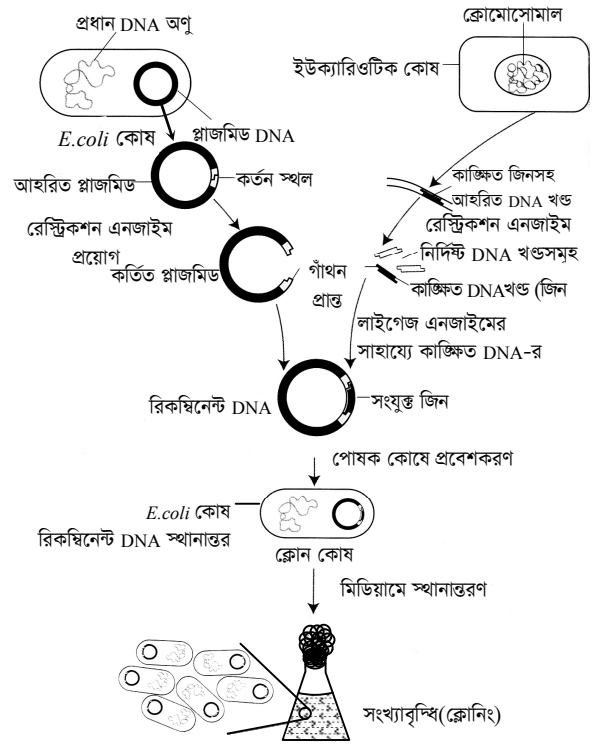 প্রধান DNA অণু
ক্রোমোসোমাল
ইউক্যারিওটিক কোষ
E.coli কোষ
প্লাজমিড DNA
আহরিত প্লাজমিড
কর্তন স্থল
কাঙ্ক্ষিত জিনসহ
আহরিত DNA খণ্ড
রেস্ট্রিকশন এনজাইম
প্রয়োগ
রেস্ট্রিকশন এনজাইম
নির্দিষ্ট DNA খণ্ডসমূহ
কর্তিত প্লাজমিড
গাঁথন
প্রান্ত
কাঙ্ক্ষিত DNAখণ্ড (জিন
লাইগেজ এনজাইমের
সাহায্যে কাঙ্ক্ষিত DNA-র
রিকম্বিনেন্ট DNA
সংযুক্ত জিন
পোষক কোষে প্রবেশকরণ
E.coli কোষ
রিকম্বিনেন্ট DNA স্থানান্তর
ক্লোন কোষ
মিডিয়ামে স্থানান্তরণ
সংখ্যাবৃদ্ধি(ক্লোনিং)